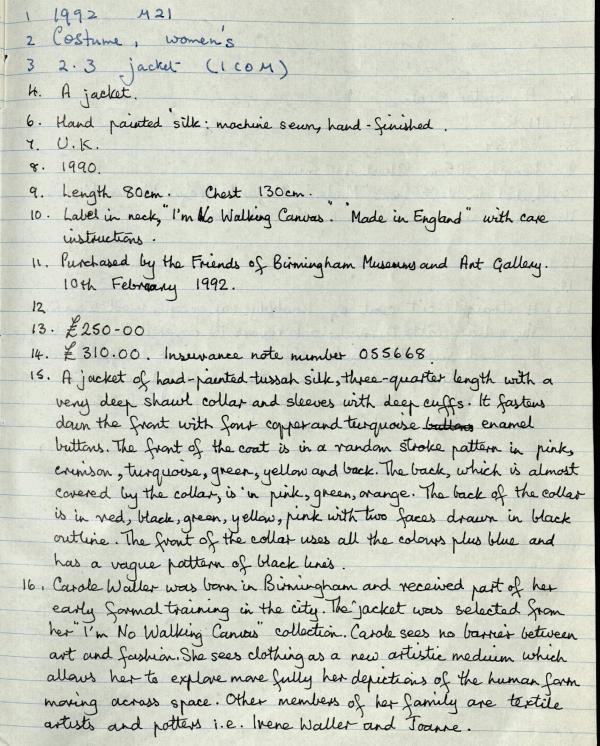 1 1992 M21
2 Costume, women's
3 2.3 jacket (ICOM)
4. A jacket.
6. Hand painted silk: machine sewn, hand-finished.
7. U.K.
8. 1990.
9. Length 80cm. Chest 130cm.
10. Label in neck, "I'm No Walking Canvas". "Made in England" with care
instructions.
11. Purchased by the Friends of Birmingham Museums and Art Gallery.
10th February 1992.
12
13. £250-00
14. £310.00. Insurance note number 055668.
15. A jacket of hand-painted tussah silk, three-quarter length with a
very deep shawl collar and sleeves with deep cuffs. It fastens
down the front with four copper and turquoise buttons enamel
buttons. The front of the coat is in a random stroke pattern in pink,
crimson, turquoise, green, yellow and back. The back, which is almost
covered by the collar, is in pink, green, orange. The back of the collar
is in red, black, green, yellow, pink with two faces drawn in black
outline. The front of the collar uses all the colours plus blue and
has a vague pattern of black lines.
16. Carole Waller was born in Birmingham and received part of her
early formal training in the city. The jacket was selected from
her "I'm No Walking Canvas" collection. Carole sees no barrier between
art and fashion. She sees clothing as a new artistic medium which
allows her to explore more fully her depictions of the human form
moving across space. Other members of her family are textile
artists and potters i.e. Irene Waller and Joanne.